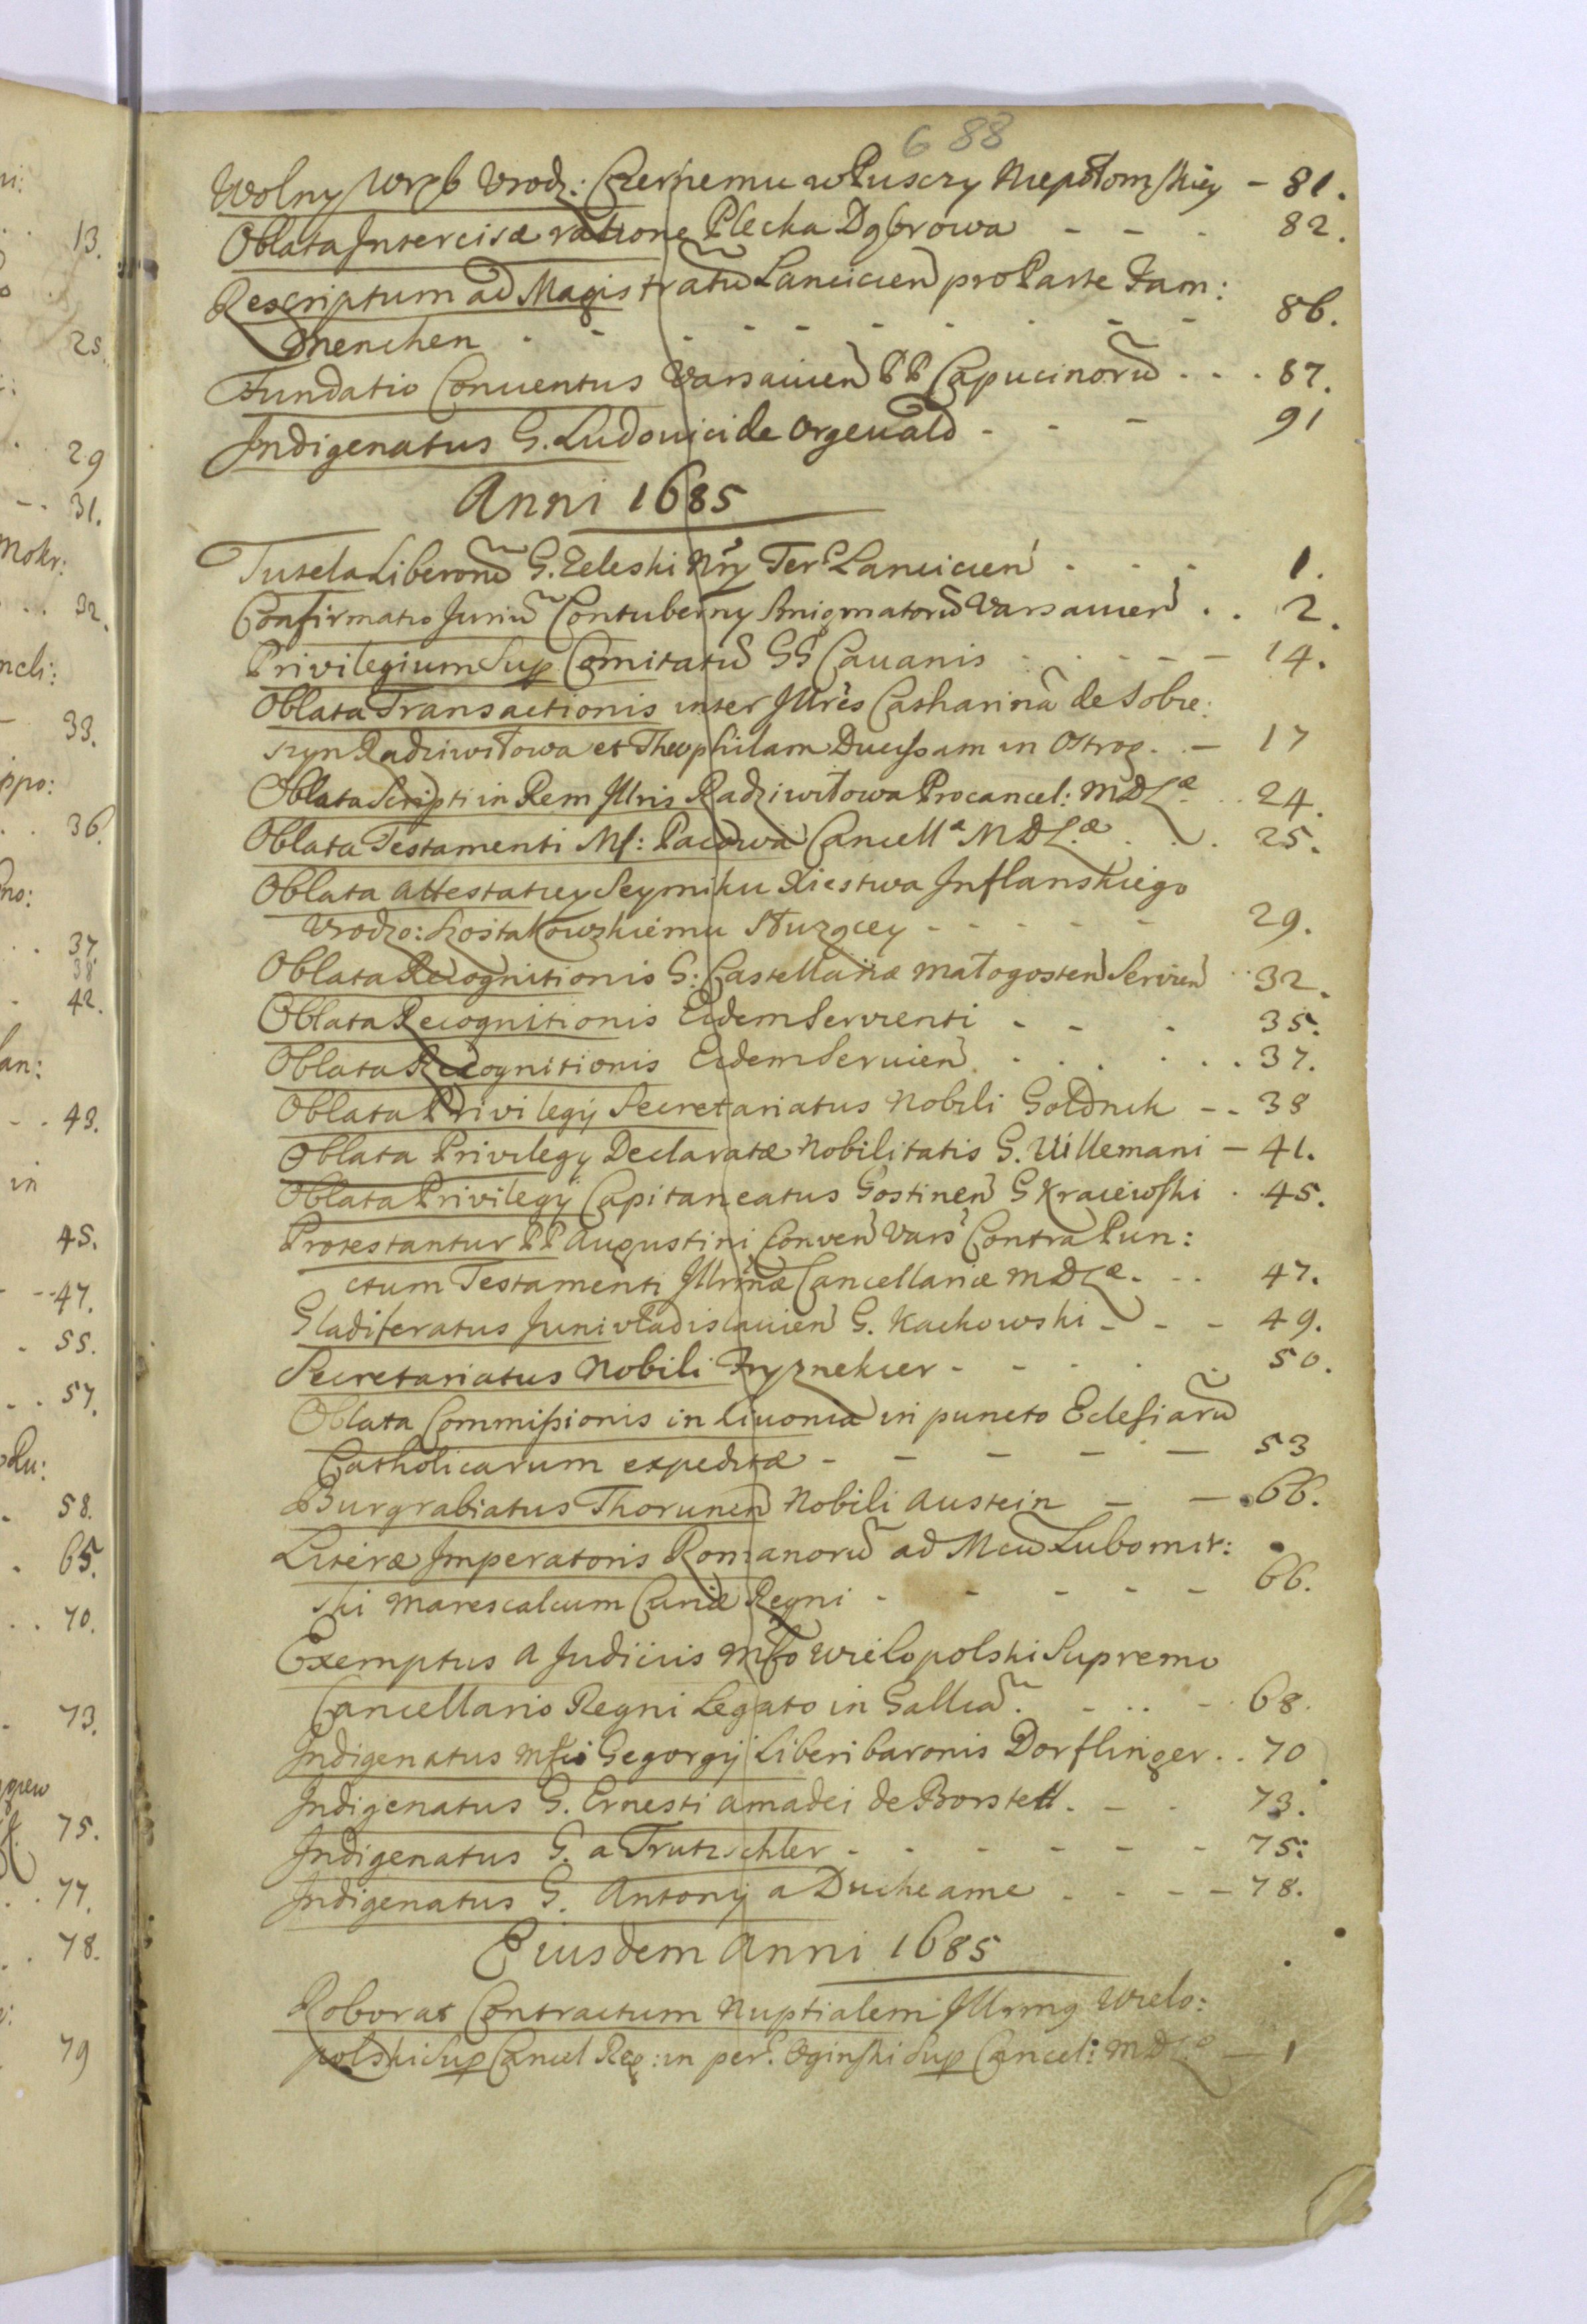 688
Wolny Wrąb Vrodz: Czernemu w Pusczy Niepołomskiey - 81.
Oblata Intercisæ ratione Plecka Dąbrowa - - - 82.
Rescriptum ad Magistratũ Lancicieñ pro Parte Fam:
Menchen - - - - - - - - - 86.
Fundatio Conuentus Varsauieñ PP Capucinorũ . . . 87.
Indigenatus G. Ludouici de Orgeuald - - - 91
Anni 1685
Tutela Liberorũ G. Zeleski Nrÿ Terr Lanicieñ . - - 1.
Confirmatio Juriũ Contuberny Smigmatorũ Varsauieñ . . 2.
Privilegium Sup Comitatũ GG Cauanis - - - - - 14.
Oblata Transactionis inter Illres Catharinã de Sobie:
szyn Radziwiłowa et Theophilam Ducissam in Ostrog. . - 17
Oblata Scripti in Rem Illris Radziwiłowa Procancel: MDLæ . . 24.
Oblata Testamenti Mf: Pacowa Cancellæ MDLæ . . . 25.
Oblata Attestatiey Seymiku Xiestwa Inflanskiego
Vrodzo: Szostakowskiemu służącey - - - - - 29.
Oblata Recognitionis G: Castellanæ Małogosteñ Servieñ . . 32.
Oblata Recognitionis Eidem Servienti - - - 35.
Oblata Recognitionis Eidem Seruieñ . . . . . 37.
Oblata Privilegÿ Secretariatus Nobili Goldnik - - 38
Oblata Privilegÿ Declaratæ Nobilitatis G. Uillemani - 41.
Oblata Privilegÿ Capitaneatus Gostineñ G Kraiewski . 45.
Protestantur PP Augustini Conveñ Vars Contra Pun:
ctum Testamenti Illrmæ Cancellariæ MDLæ. . . 47.
Gladiferatus Juniuladislauieñ G. Kachowski - - - 49.
Secretariatus Nobili Fryznekier - - - . . 50.
Oblata Commissionis in Liuonia in puncto Eclesiarũ
Catholicarum expeditæ - - - - - 53
Burgrabiatus Thoruneñ Nobili Austein - - 66.
Literæ Imperatoris Romanorũ ad Mcũ Lubomir:
ski Marescalcum Curiæ Regni - - - - - 66.
Exemptus a Judiciis Mfco Wielopolski Supremo
Cancellario Regni Legato in Galliã. - . . - 68.
Indigenatus Mfci Gegorgÿ Liberi baronis Dorflinger . . 70
Indigenatus G. Ernesti Amadei de Borstell . - - 73.
Indigenatus G. a Trutzschler - - - - - - 75:
Indigenatus G. Antonÿ a Ducheame . - - - 78.
Eiusdem Anni 1685
Roborat Contractum Nuptialem Illrmy Wielo:
polski Sup Cancel Reg: in per. Oginski Sup Cancel: MDLæ - 1